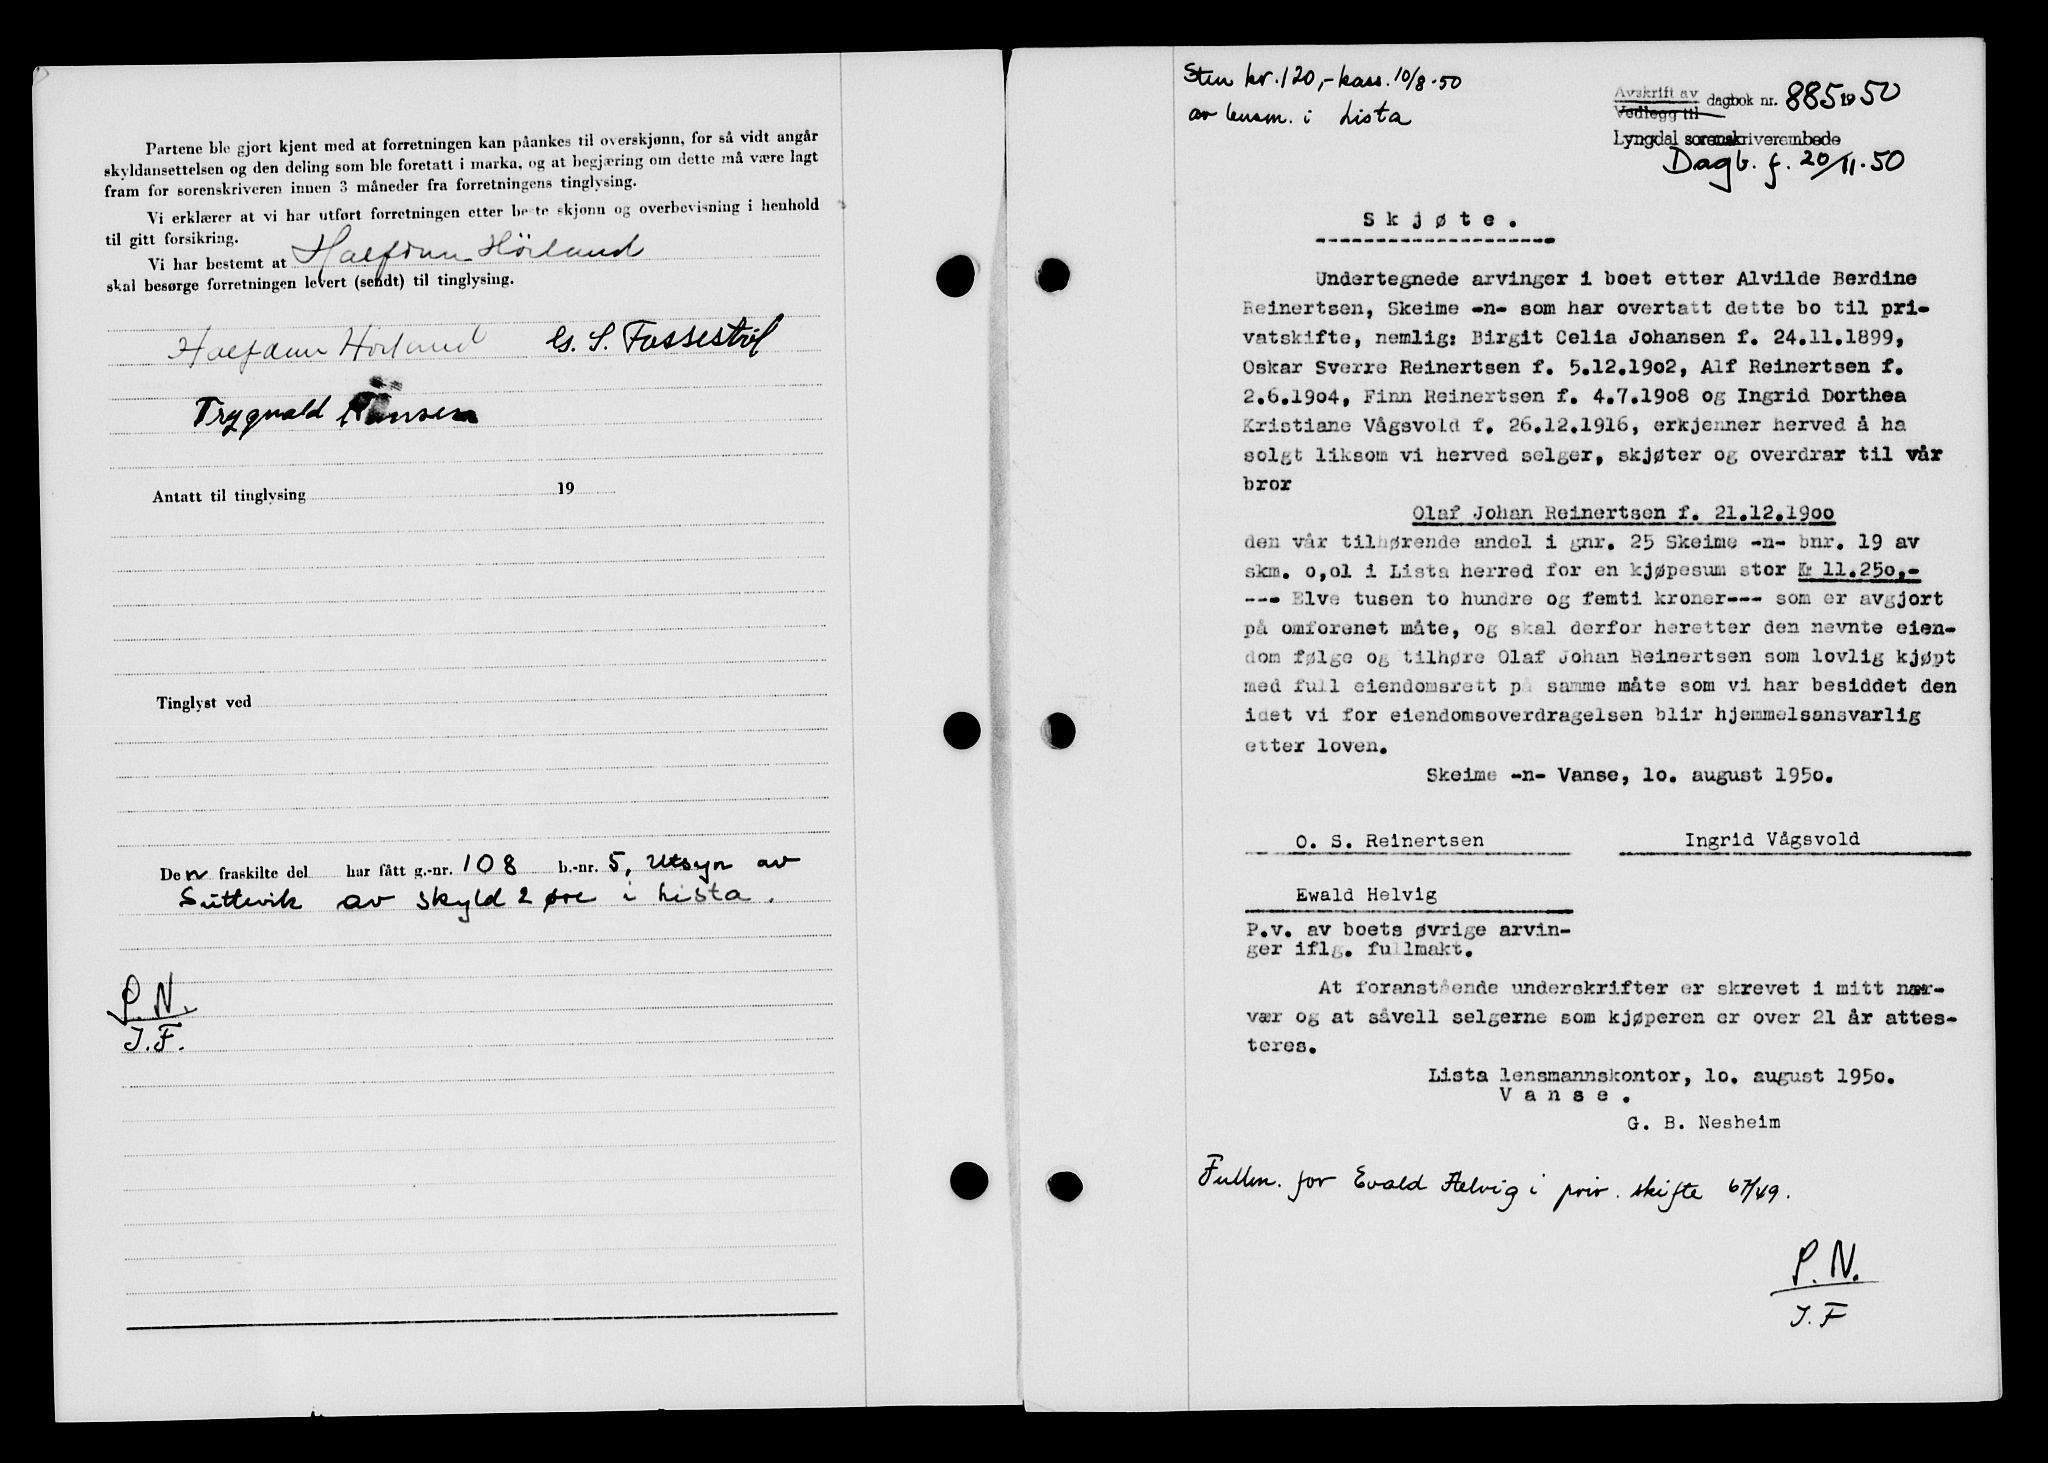 Partene ble gjort kjent med at forretningen kan påankes til overskjønn, for så vidt angår
skyldansettelsen og den deling som ble foretatt i marka, og at begjæring om dette må være lagt
fram for sorenskriveren innen 3 måneder fra forretningens tinglysing.
Vi erklærer at vi har utført forretningen etter beste skjønn og overbevisning i henhold
til gitt forsikring.
Vi har bestemt at Halfdan Hörland
skal besørge forretningen levert (sendt) til tinglysing.
Halfdan Hörland G. S. Fossestöl
Trygvald Hansen
Antatt til tinglysing 19
Tinglyst ved
Den fraskilte del har fått g.-nr. 108 b.-nr. 5, Utsyn av
Suttevik av skyld 2 øre i Lista.
P.N.
J.F.
Sten kr. 120,- kass. 10/8-50
av lensm. i Lista
Avskrift av
Vedlegg til dagbok nr. 885 1950
Lyngdal sorenskriverembede
Dagb. f. 20/11-50
Skjøte.
Undertegnede arvinger i boet etter Alvilde Berdine
Reinertsen, Skeime -n- som har overtatt dette bo til pri-
vatskifte, nemlig: Birgit Celia Johansen f. 24.11.1899,
Oskar Sverre Reinertsen f. 5.12.1902, Alf Reinertsen f.
2.6.1904, Finn Reinertsen f. 4.7.1908 og Ingrid Dorthea
Kristiane Vågsvold f. 26.12.1916, erkjenner herved å ha
solgt liksom vi herved selger, skjøter og overdrar til vår
bror
Olaf Johan Reinertsen f. 21.12.1900
den vår tilhørende andel i gnr. 25 Skeime -n- bnr. 19 av
skm. 0,01 i Lista herred for en kjøpesum stor Kr 11.250,-
--- Elve tusen to hundre og femti kroner--- som er avgjort
på omforenet måte, og skal derfor heretter den nevnte eien-
dom følge og tilhøre Olaf Johan Reinertsen som lovlig kjøpt
med full eiendomsrett på samme måte som vi har besiddet den
idet vi for eiendomsoverdragelsen blir hjemmelsansvarlig
etter loven.
Skeime -n- Vanse, 10. august 1950.
O. S. Reinertsen Ingrid Vågsvold
Ewald Helvig
P.v. av boets øvrige arvin-
ger iflg. fullmakt.
At foranstående underskrifter er skrevet i mitt nær-
vær og at såvell selgerne som kjøperen er over 21 år attes-
teres.
Lista lensmannskontor, 10. august 1950.
Vanse.
G. B. Nesheim
Fullm. for Evald Helvig i priv. skifte 67/49.
P.N.
J.F